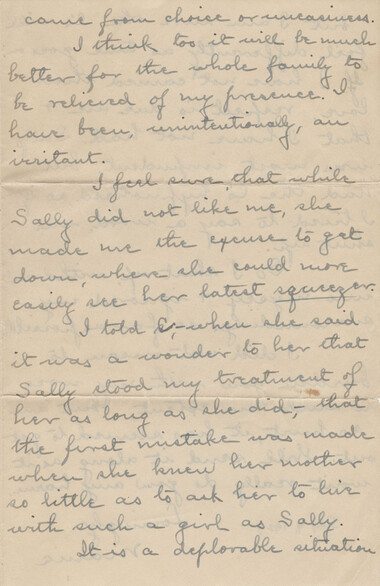 came from choice or uneasiness.
I think too it will be much
better for the whole family to
be relieved of my presence. I
have been, unintentionally, an
irritant.
I feel sure, that while
Sally did not like me, she
made me the excuse to get
down, where she could more
easily see her latest squeezer.
I told E; when she said
it was a wonder to her that
Sally stood my treatment of
her as long as she did,- that
the first mistake was made
when she knew her mother
so little as to ask her to live
with such a girl as Sally.
It is a deplorable situation